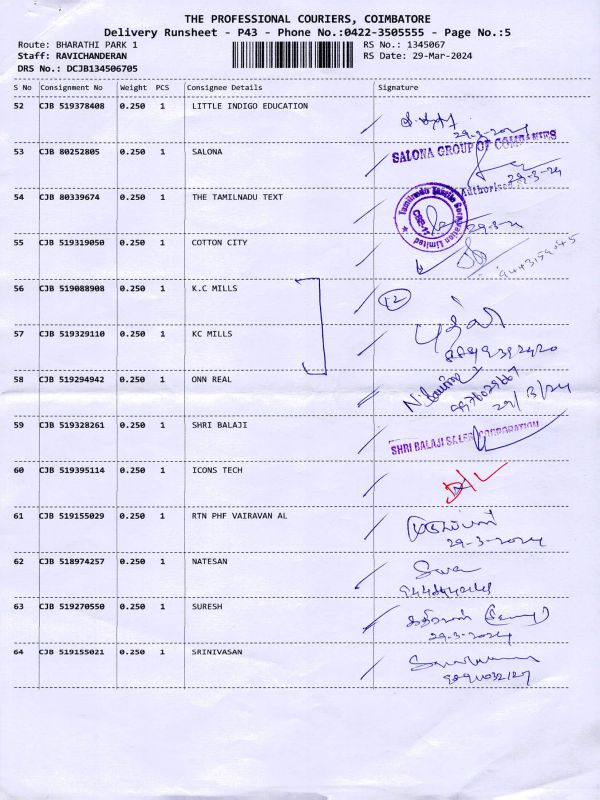 THE PROFESSIONAL COURIERS, COIMBATORE
Delivery Runsheet - P43 - Phone No.:0422-3505555 - Page No.:5
Route: BHARATHI PARK 1 RS No.: 1345067
Staff: RAVICHANDERAN RS Date: 29-Mar-2024
DRS No.: DCJB134506705
S No Consignment No Weight PCS Consignee Details Signature
52 CJB 519378408 0.250 1 LITTLE INDIGO EDUCATION
29-3-2024
SALONA GROUP OF COMPANIES
53 CJB 80252805 0.250 1 SALONA
29-3-24
Authorised
54 CJB 80339674 0.250 1 THE TAMILNADU TEXT
Tamilnadu Textile Corporation Limited
CBE-11
55 CJB 519319050 0.250 1 COTTON CITY
56 CJB 519088908 0.250 1 K.C MILLS
12
57 CJB 519329110 0.250 1 KC MILLS
58 CJB 519294942 0.250 1 ONN REAL
29/3/24
59 CJB 519328261 0.250 1 SHRI BALAJI
SHRI BALAJI SALES CORPORATION
60 CJB 519395114 0.250 1 ICONS TECH
61 CJB 519155029 0.250 1 RTN PHF VAIRAVAN AL
29-3-2024
62 CJB 518974257 0.250 1 NATESAN
63 CJB 519270550 0.250 1 SURESH
29-3-2024
64 CJB 519155021 0.250 1 SRINIVASAN